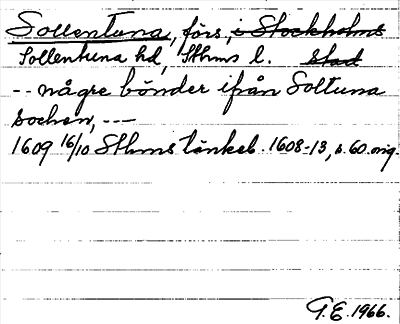 Sollentuna, förs, i Stockholms
Sollentuna hd, Sthms l. stad
-- någre bönder ifrån Soltuna
sochen, ---
1609 16/10 Sthms tänkeb. 1608-13, s. 60. orig.
G.E. 1966.